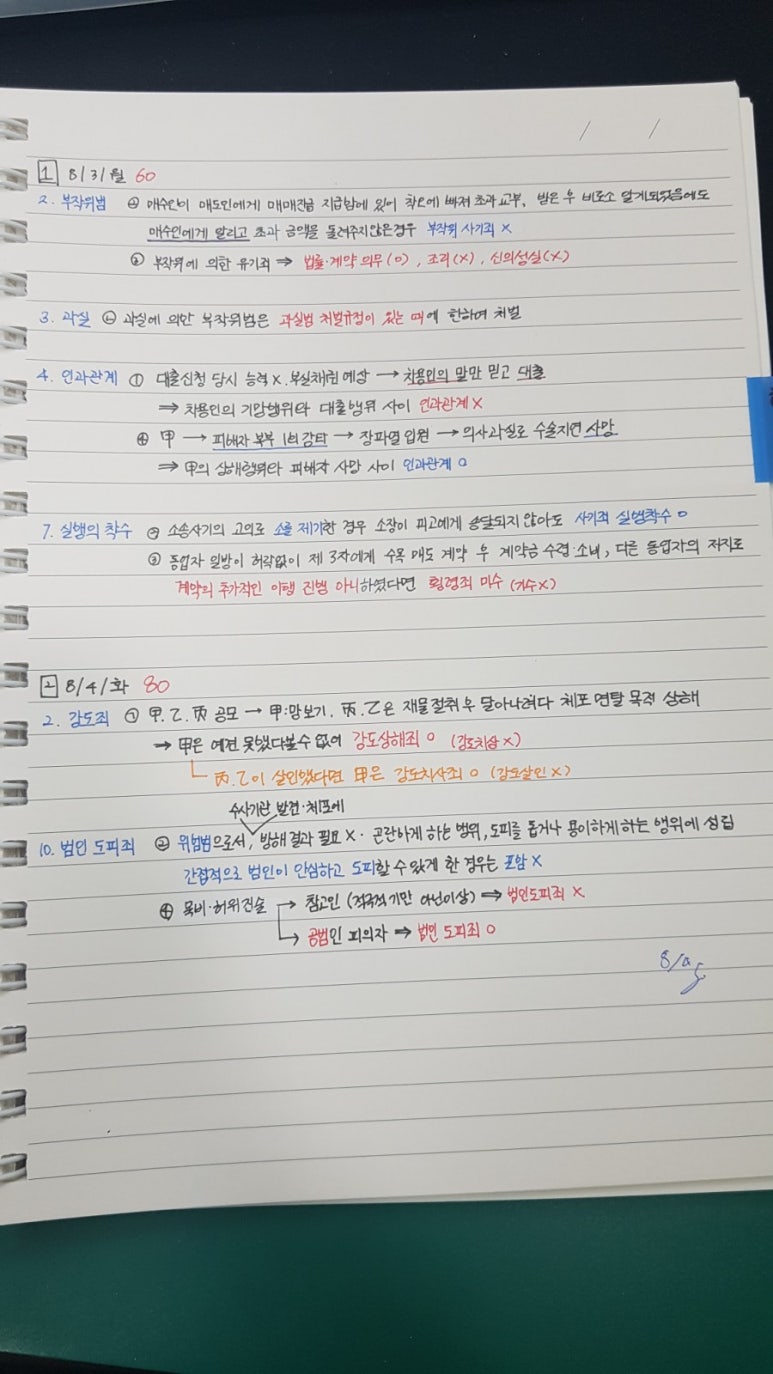 / /
1 8/3/월 60
2. 부작위범 ④ 매수인이 매도인에게 매매잔금 지급함에 있어 착오에 빠져 초과교부, 받은 후 비로소 알게되었음에도
매수인에게 알리고 초과 금액을 돌려주지않은경우 부작위 사기죄 X
② 부작위에 의한 유기죄 ⇒ 법률·계약 의무(O), 조리(X), 신의성실(X)
3. 과실 과실에 의한 부작위범은 과실범 처벌규정이 있는 때에 한하여 처벌
4. 인과관계 ① 대출신청 당시 능력X·부실채권 예상 → 차용인의 말만 믿고 대출
⇒ 차용인의 기망행위와 대출행위 사이 인과관계 X
④ 甲 → 피해자 복부 1회 강타 → 장파열 입원 → 의사과실로 수술지연 사망
⇒ 甲의 상해행위와 피해자 사망 사이 인과관계 O
7. 실행의 착수 소송사기의 고의로 소를 제기한 경우 소장이 피고에게 송달되지 않아도 사기죄 실행착수 O
③ 동업자 일방이 허락없이 제 3자에게 수목 매도 계약 후 계약금 수령·소비, 다른 동업자의 저지로
계약의 추가적인 이행 진행 아니하였다면 횡령죄 미수 (기수X)
2 8/4/화 80
2. 강도죄 ① 甲.乙.丙 공모 → 甲:망보기. 丙.乙은 재물절취후 달아나려다 체포 면탈 목적 상해
→ 甲은 예견 못했다볼수 없어 강도상해죄 O (강도치상 X)
丙.乙이 살인했다면 甲은 강도치사죄 O (강도살인 X)
수사기관 발견·체포에
10. 범인 도피죄 ② 위험범으로서, 방해 결과 필요 X· 곤란하게 하는 행위, 도피를 돕거나 용이하게 하는 행위에 성립
간접적으로 범인이 안심하고 도피할 수 있게 한 경우는 포함 X
④ 묵비·허위진술 → 참고인 (적극적기만 아닌이상) ⇒ 범인도피죄 X
→ 공범인 피의자 ⇒ 범인 도피죄 O